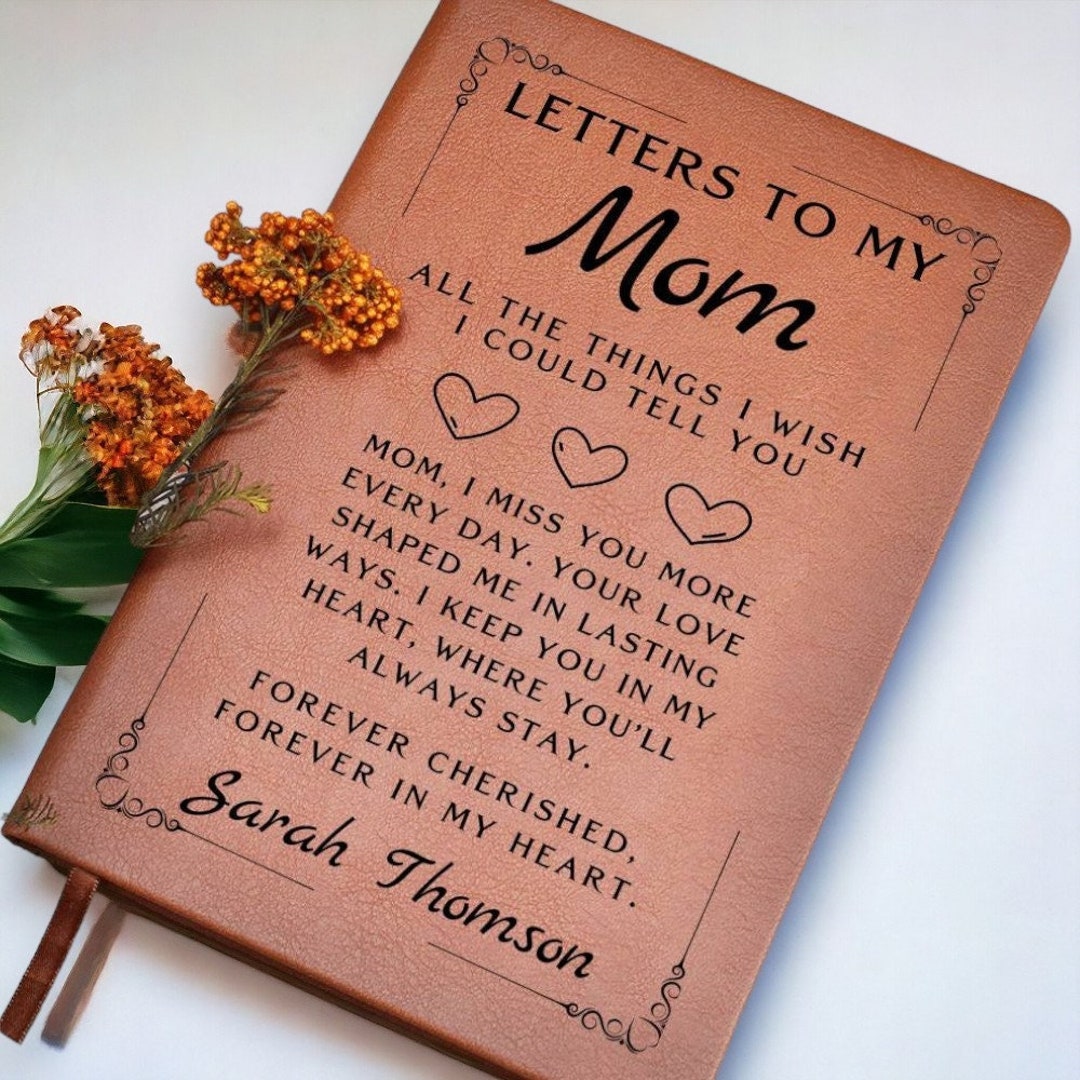 LETTERS TO MY
Mom
ALL THE THINGS I WISH
I COULD TELL YOU
MOM, I MISS YOU MORE
EVERY DAY. YOUR LOVE
SHAPED ME IN LASTING
WAYS. I KEEP YOU IN MY
HEART, WHERE YOU'LL
ALWAYS STAY.
FOREVER CHERISHED,
FOREVER IN MY HEART.
Sarah Thomson